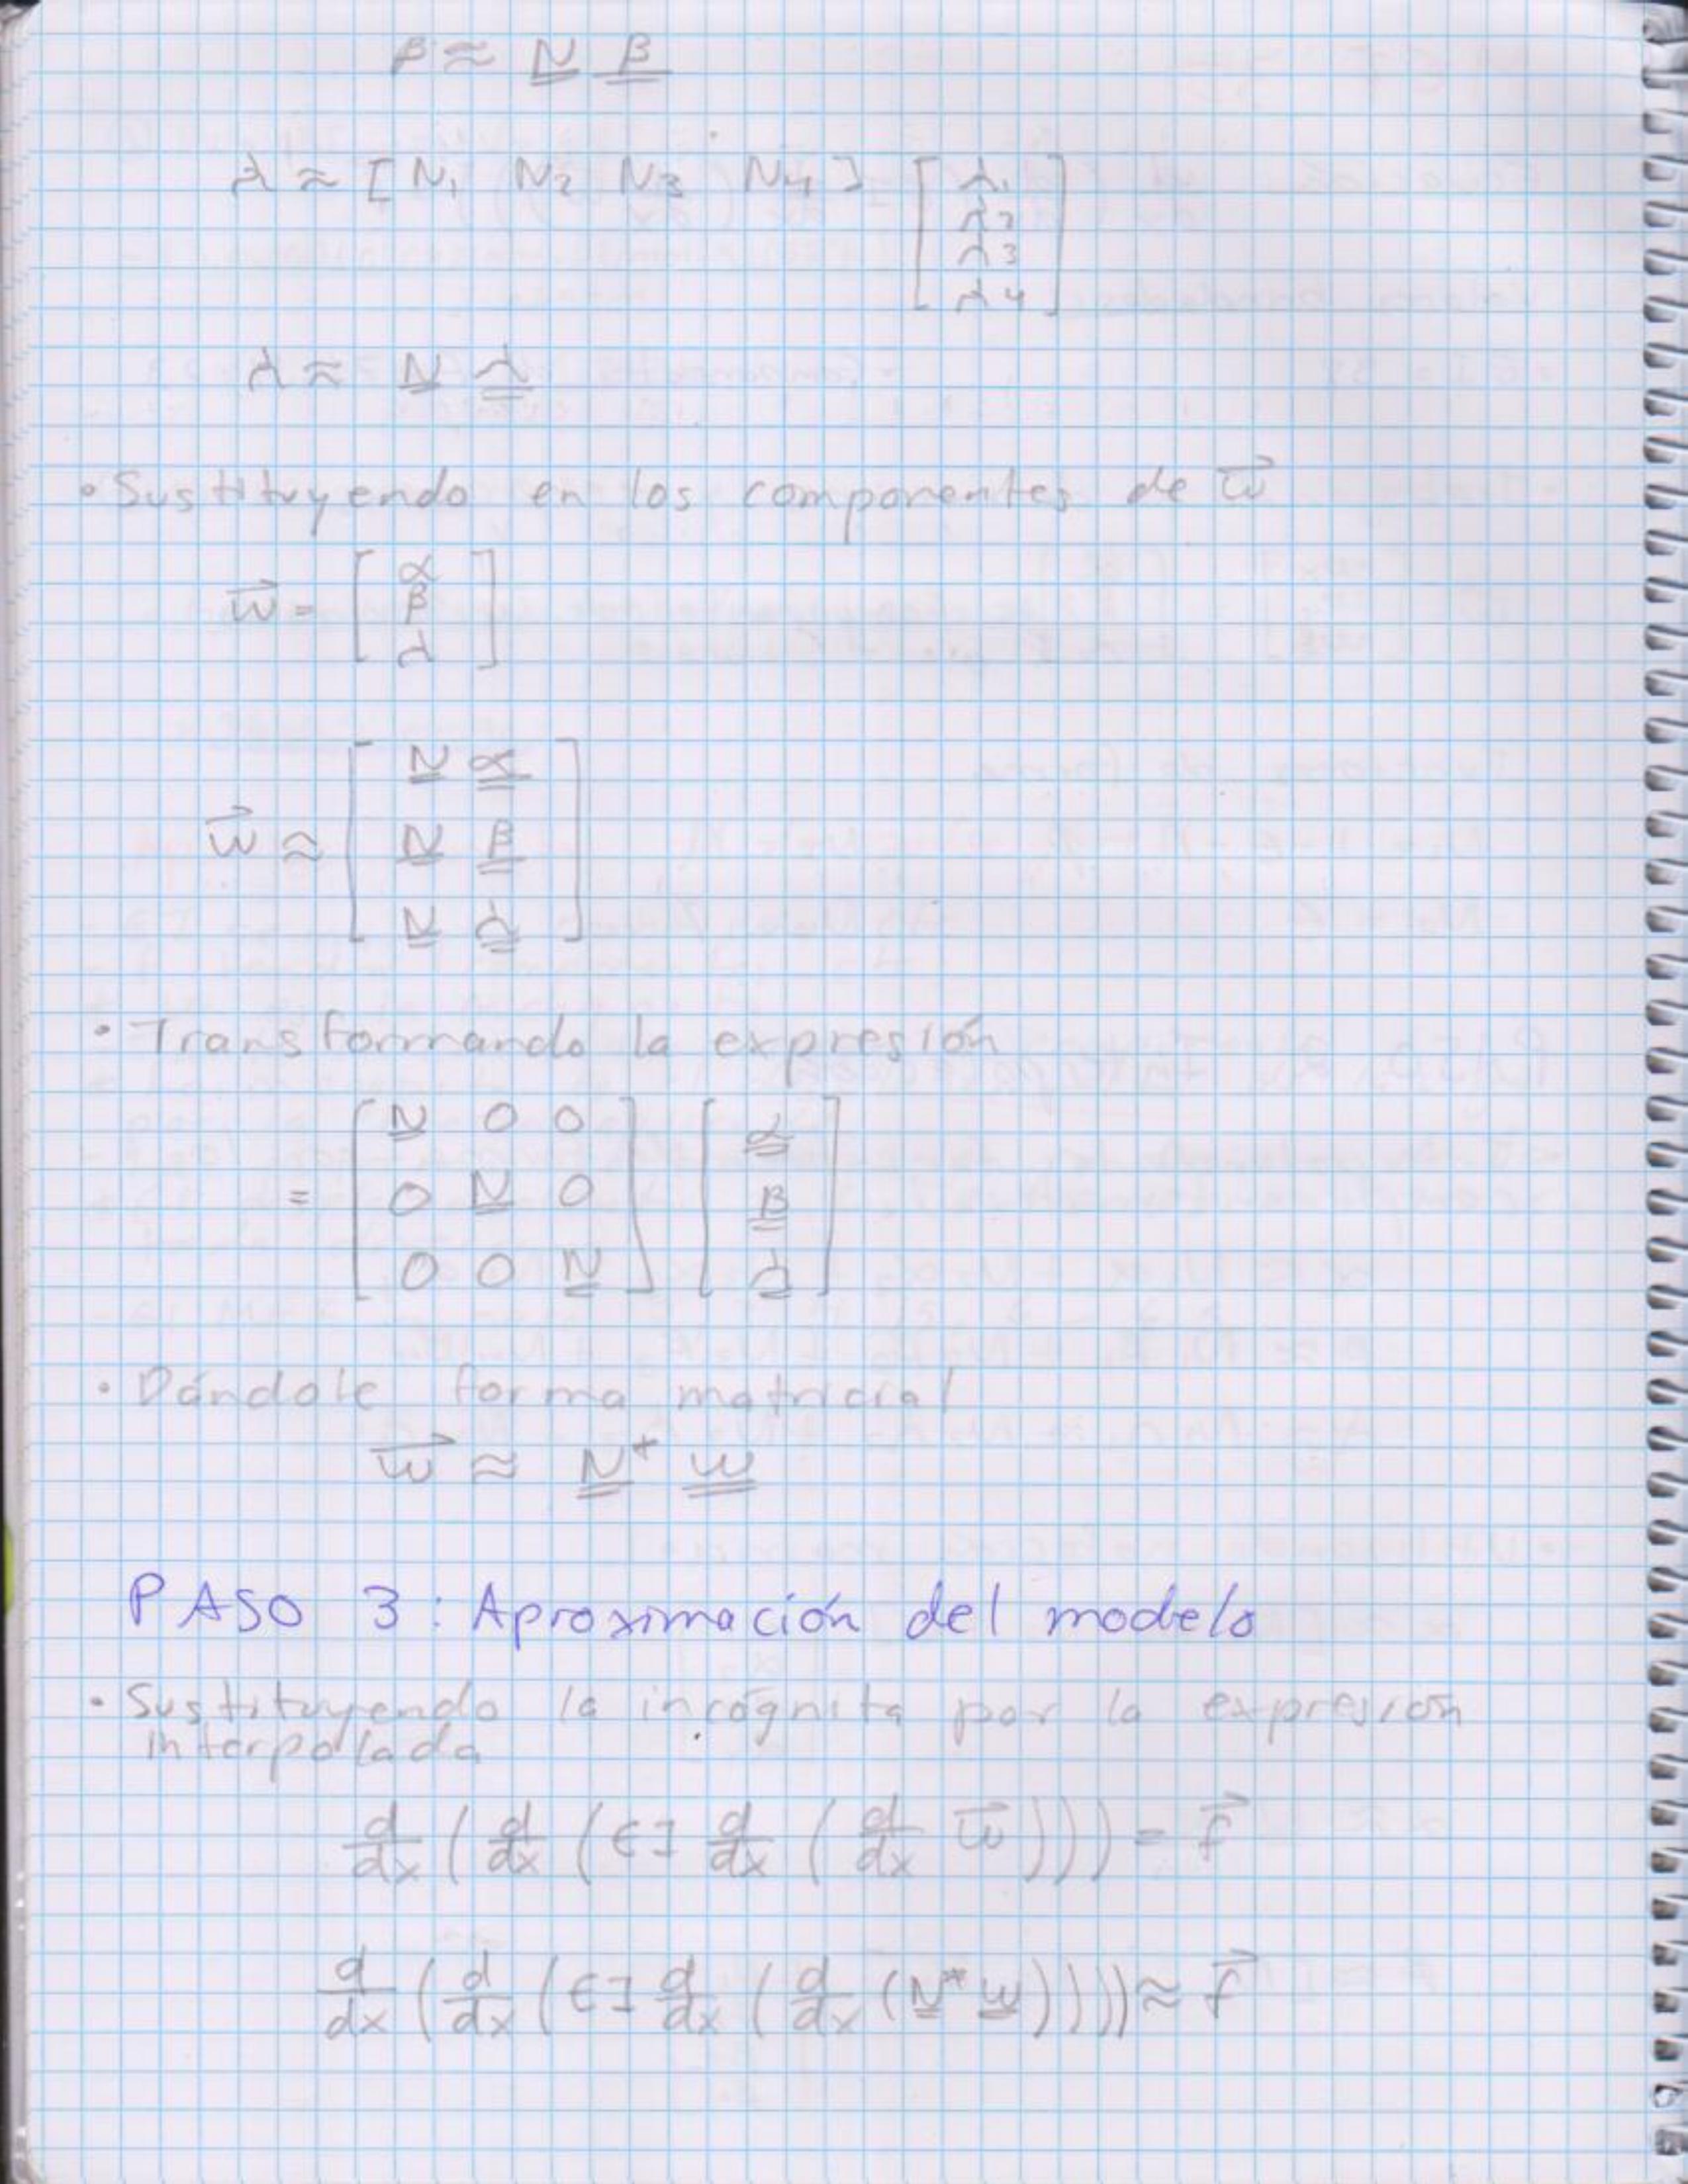 β ≈ N β
λ ≈ [ N1 N2 N3 N4 ] [ λ1
λ2
λ3
λ4 ]
λ ≈ N λ
• Sustituyendo en los componentes de w⃗
w⃗ = [ α
β
λ ]
w⃗ ≈ [ N α
N β
N λ ]
• Transformando la expresión
= [ N 0 0
0 N 0
0 0 N ] [ α
β
λ ]
• Dándole forma matricial
w⃗ ≈ N* w
PASO 3: Aproximación del modelo
• Sustituyendo la incógnita por la expresión
interpolada
d/dx ( d/dx ( EI d/dx ( d/dx w⃗ ))) = f⃗
d/dx ( d/dx ( EI d/dx ( d/dx (N* w)))) ≈ f⃗